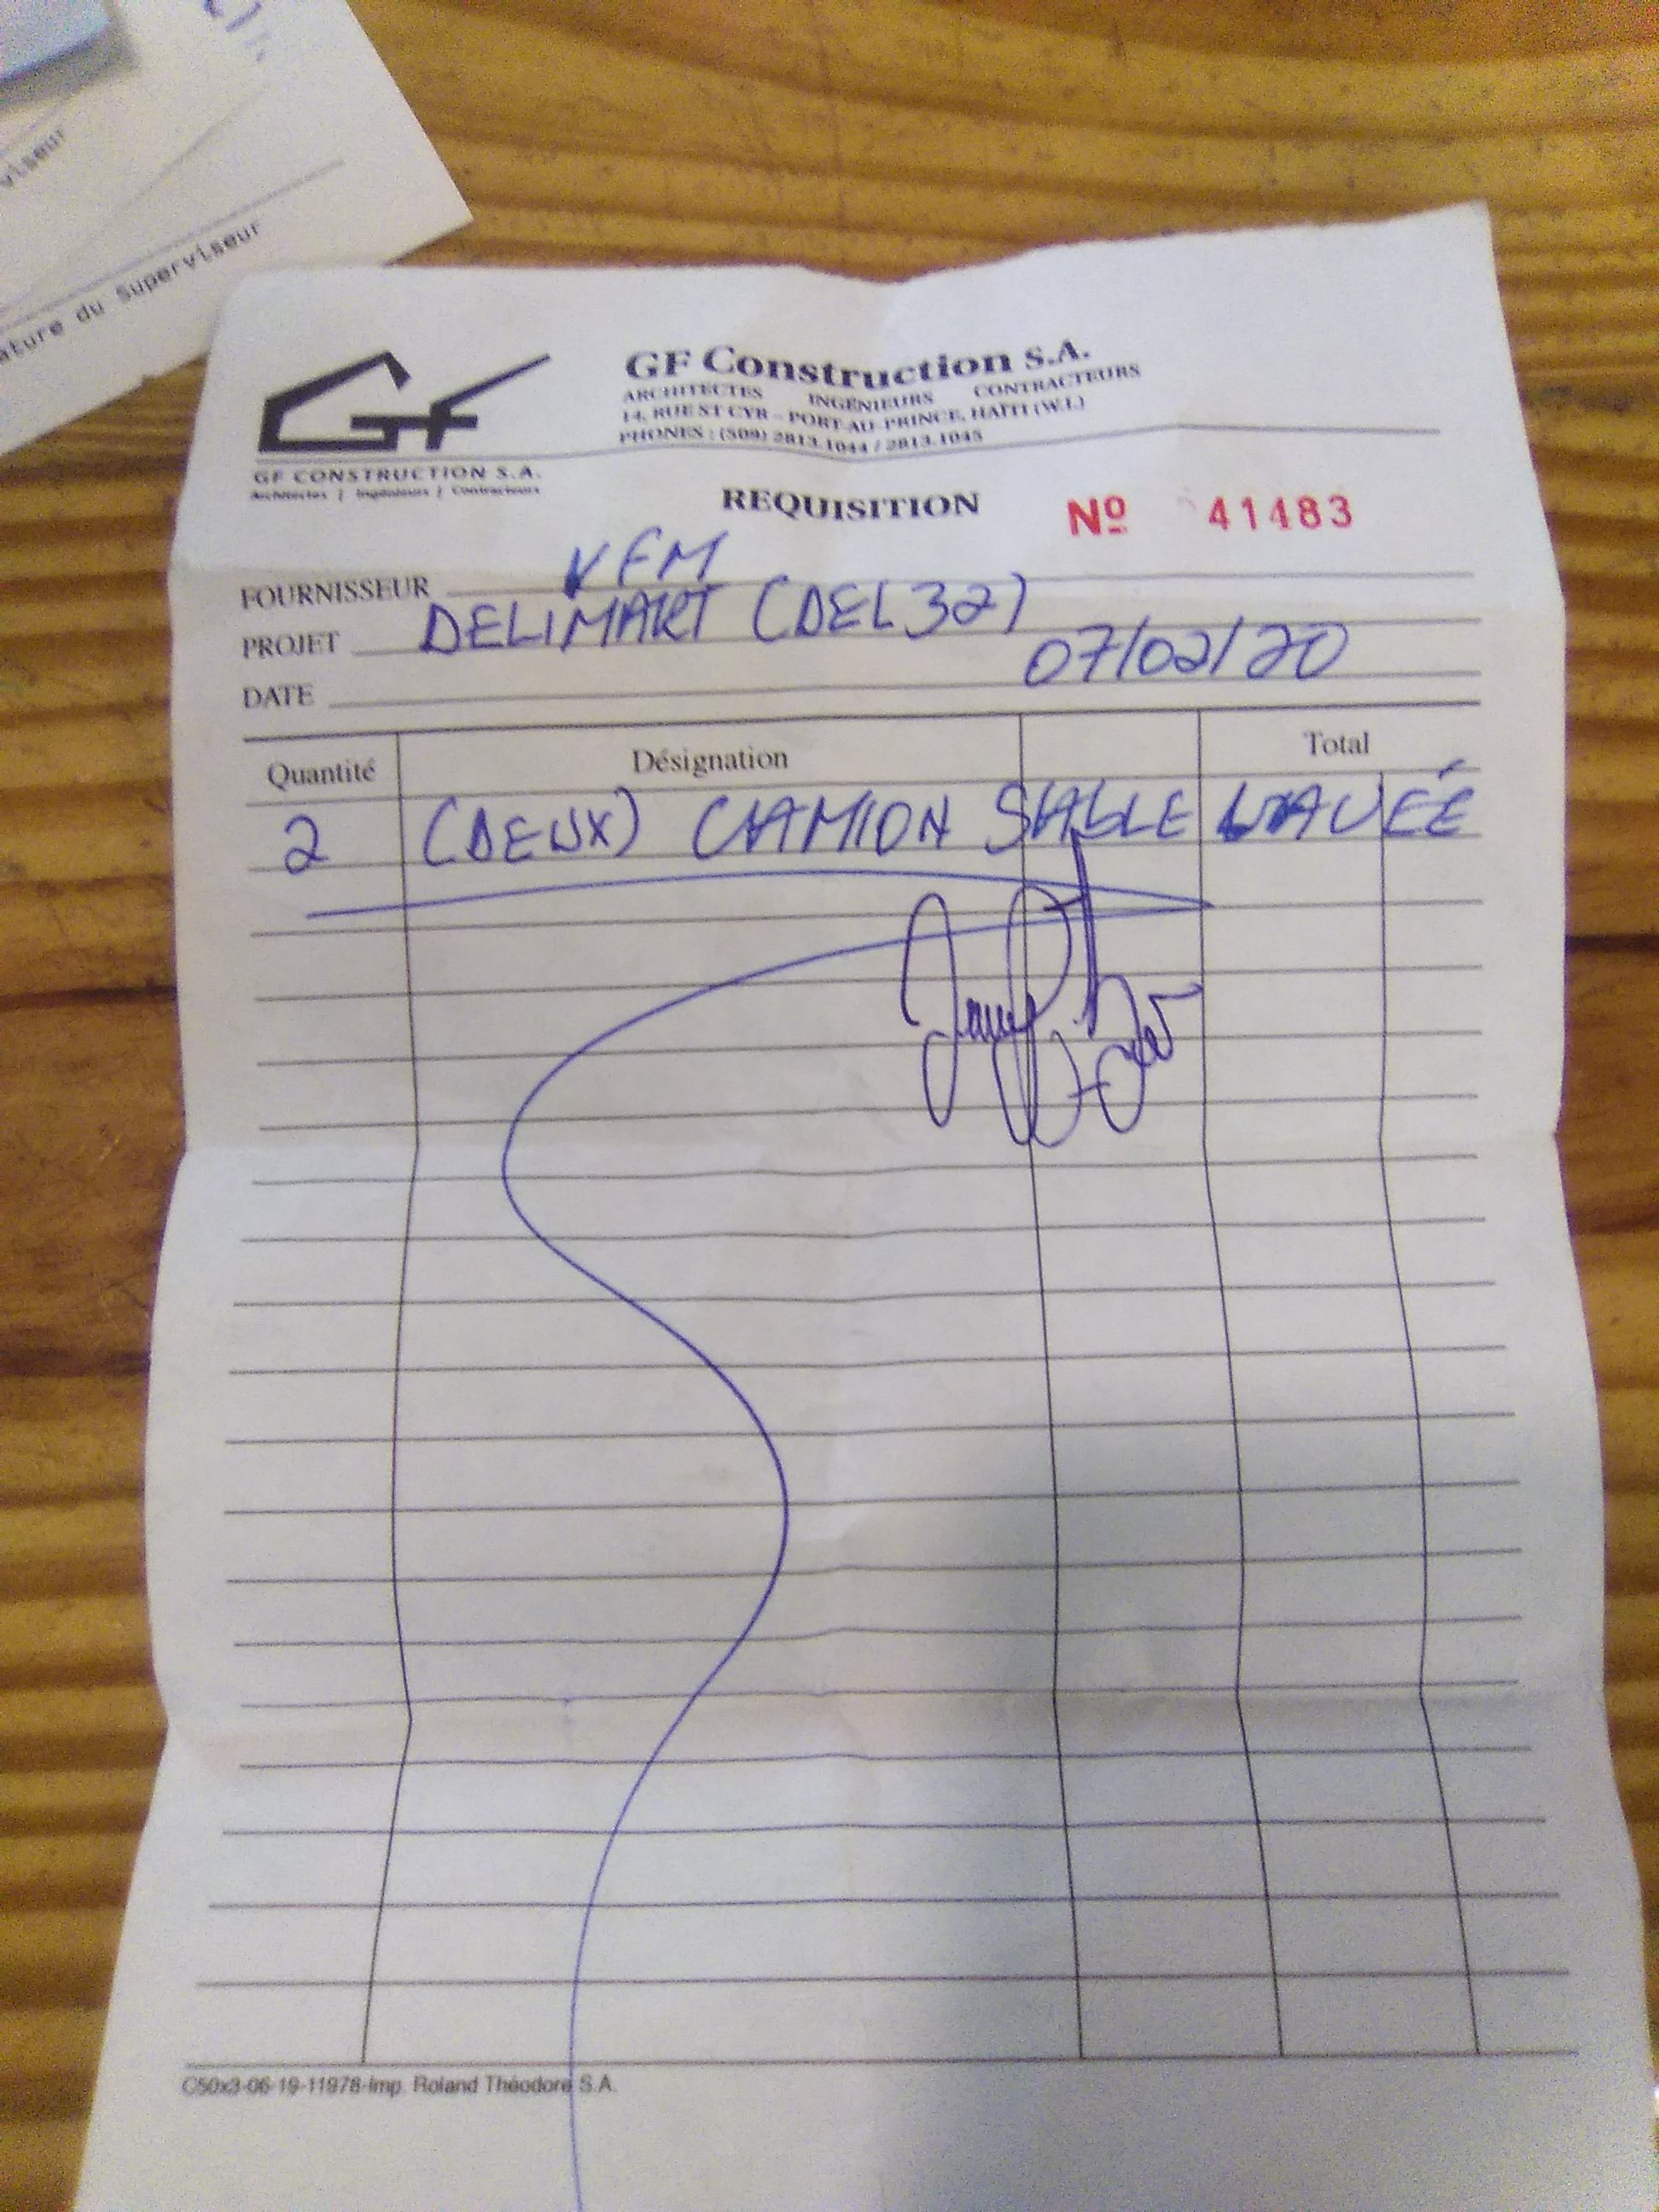 viseur
ature du Superviseur
GF CONSTRUCTION S.A.
Architectes | Ingénieurs | Contracteurs
GF Construction S.A.
ARCHITECTES INGÉNIEURS CONTRACTEURS
14, RUE ST CYR - PORT-AU-PRINCE, HAÏTI (W.I.)
PHONES : (509) 2813.1044 / 2813.1045
REQUISITION Nº 41483
FOURNISSEUR VFM
PROJET DELIMART (DEL 32)
DATE 07/02/20
Quantité Désignation Total
2 (DEUX) CAMION SABLE LAVÉE
C50x3-06-19-11978-Imp. Roland Théodore S.A.